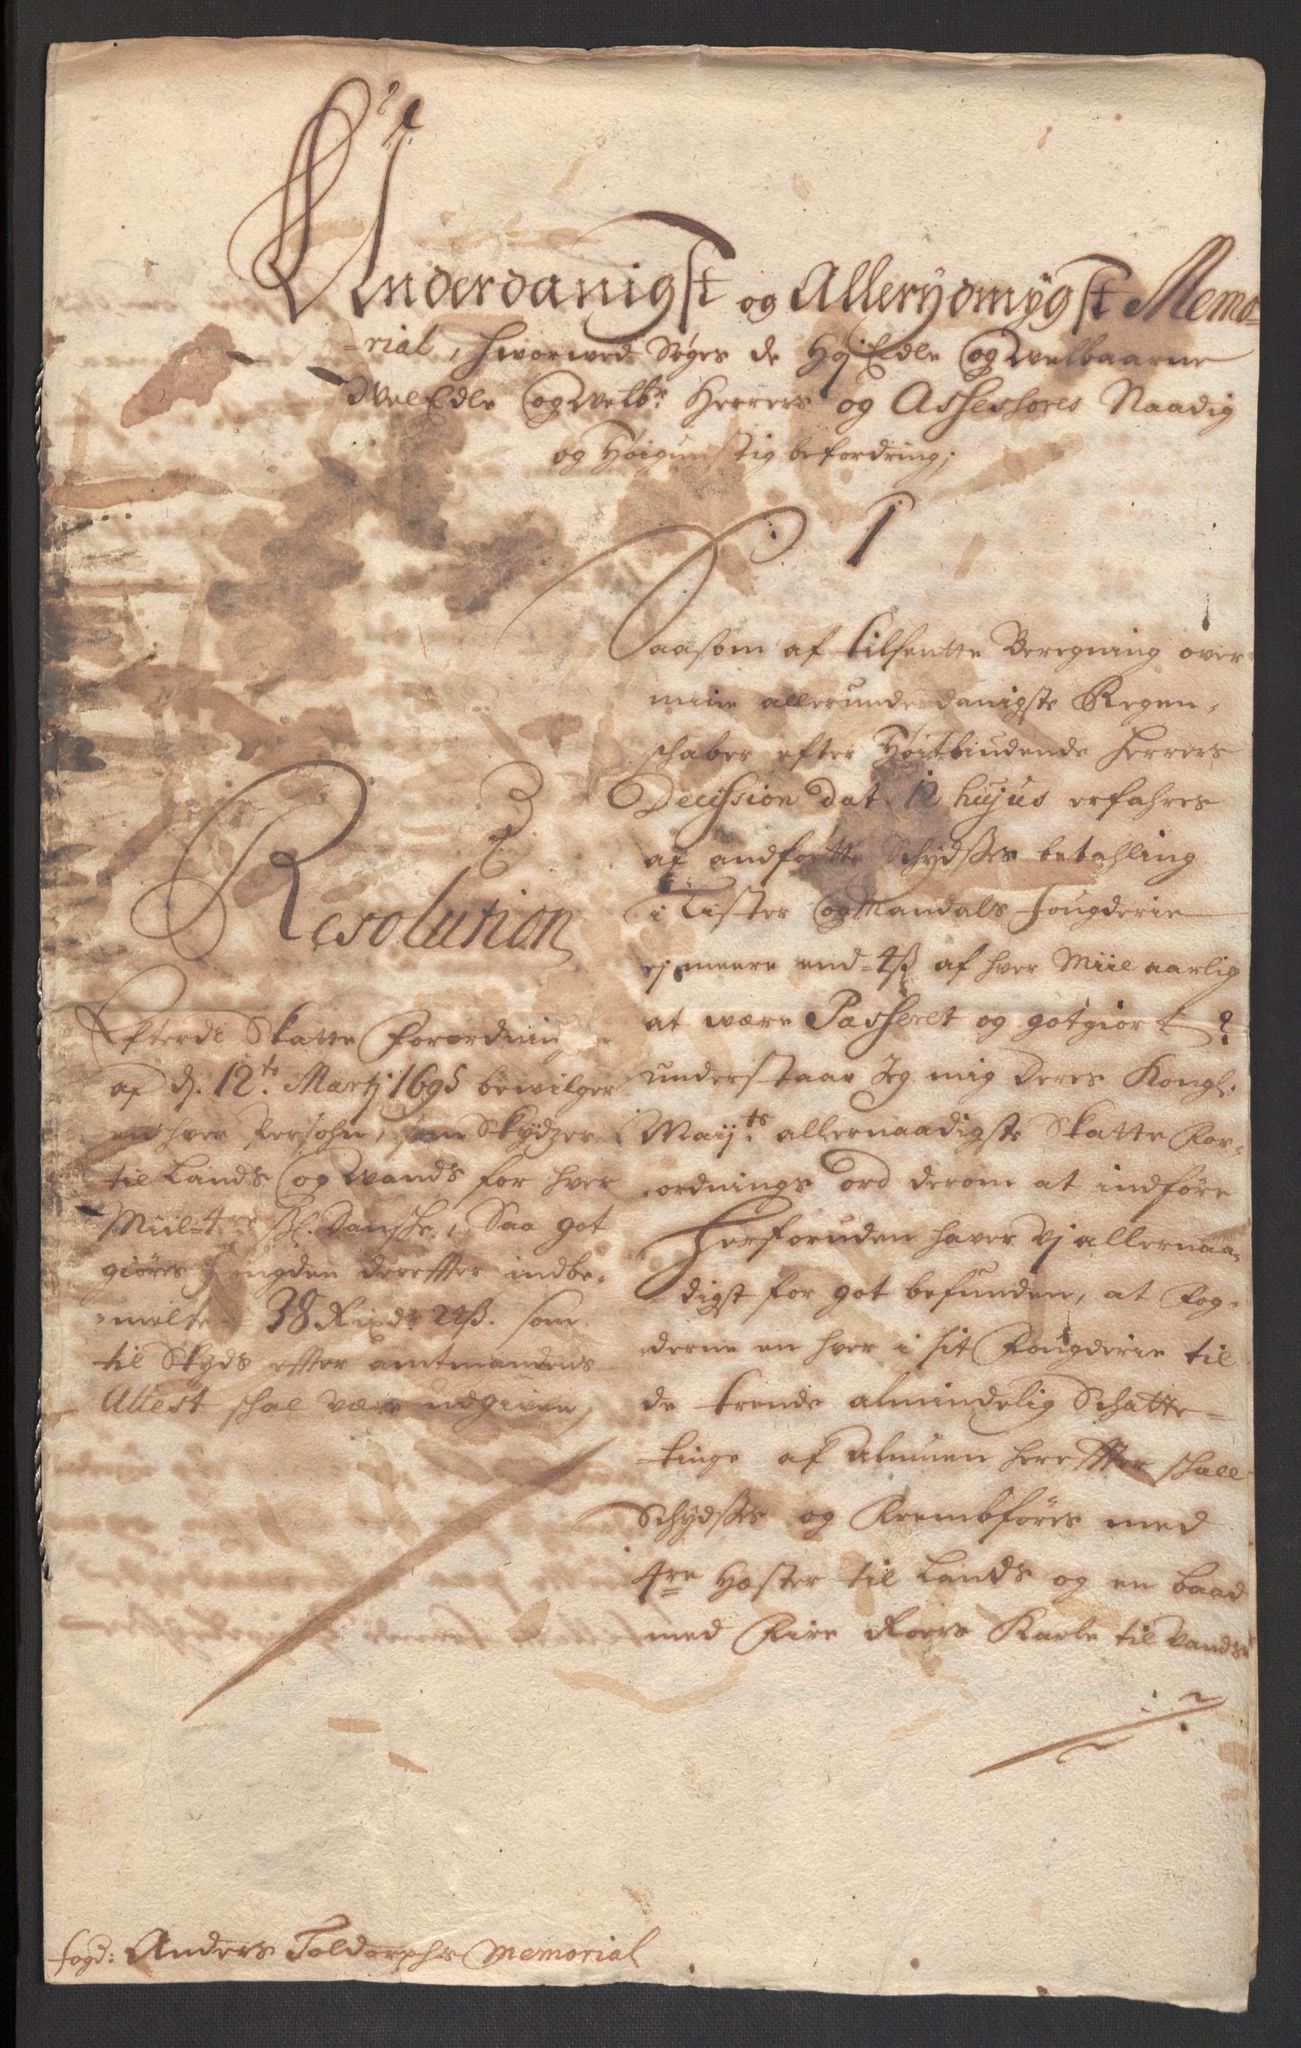 Underdanigst og Allerydmygst Memo-
-rial, hworwed Søges de HøjEdle og welbaarne
WelEdle og welb: Herrers og Assessores Naadig
og Høigunstig befordring;
1
Saasom af tilsentte Beregning over
mine allerunderdanigste Regen-
schaber efter Høitbiudende Herrers
Decission dat. 12 hujus erfahres
af andførtte Schydsses betahling
i Lister og Mandals fougderie
ej meere end 4ß af hver Miil aarlig
at være Passeret og gotgiort ?
understaar Jeg mig Deres Kongl:
Mayts allernaadigste Skatte For-
ordnings ord derom at indføre
Herforuden haver Vj allernaa-
digst for got befunden, at Fog-
derne en hver i sit Fougderie til
de trende almindelig Schatte-
tinge af Almuen hereffter schall
Schydsses og fremføres med
4re Hæster til Lands og en baad
med Fire Roers Karle til Vands
Resolution
Efterdi Skatte Forordning
af d. 12te Martj 1695 bewilger
en hver Persohn, som Skydzer
til Lands og Wands for hver
Miil 4re ßl. Danske, Saa got
giøres fougden dereffter indbe-
melte 38 Rixdr 24ß. som
til Skyds effter amtmandens
Attest schal være udgiven
fogd: Anders Toldorphs Memorial